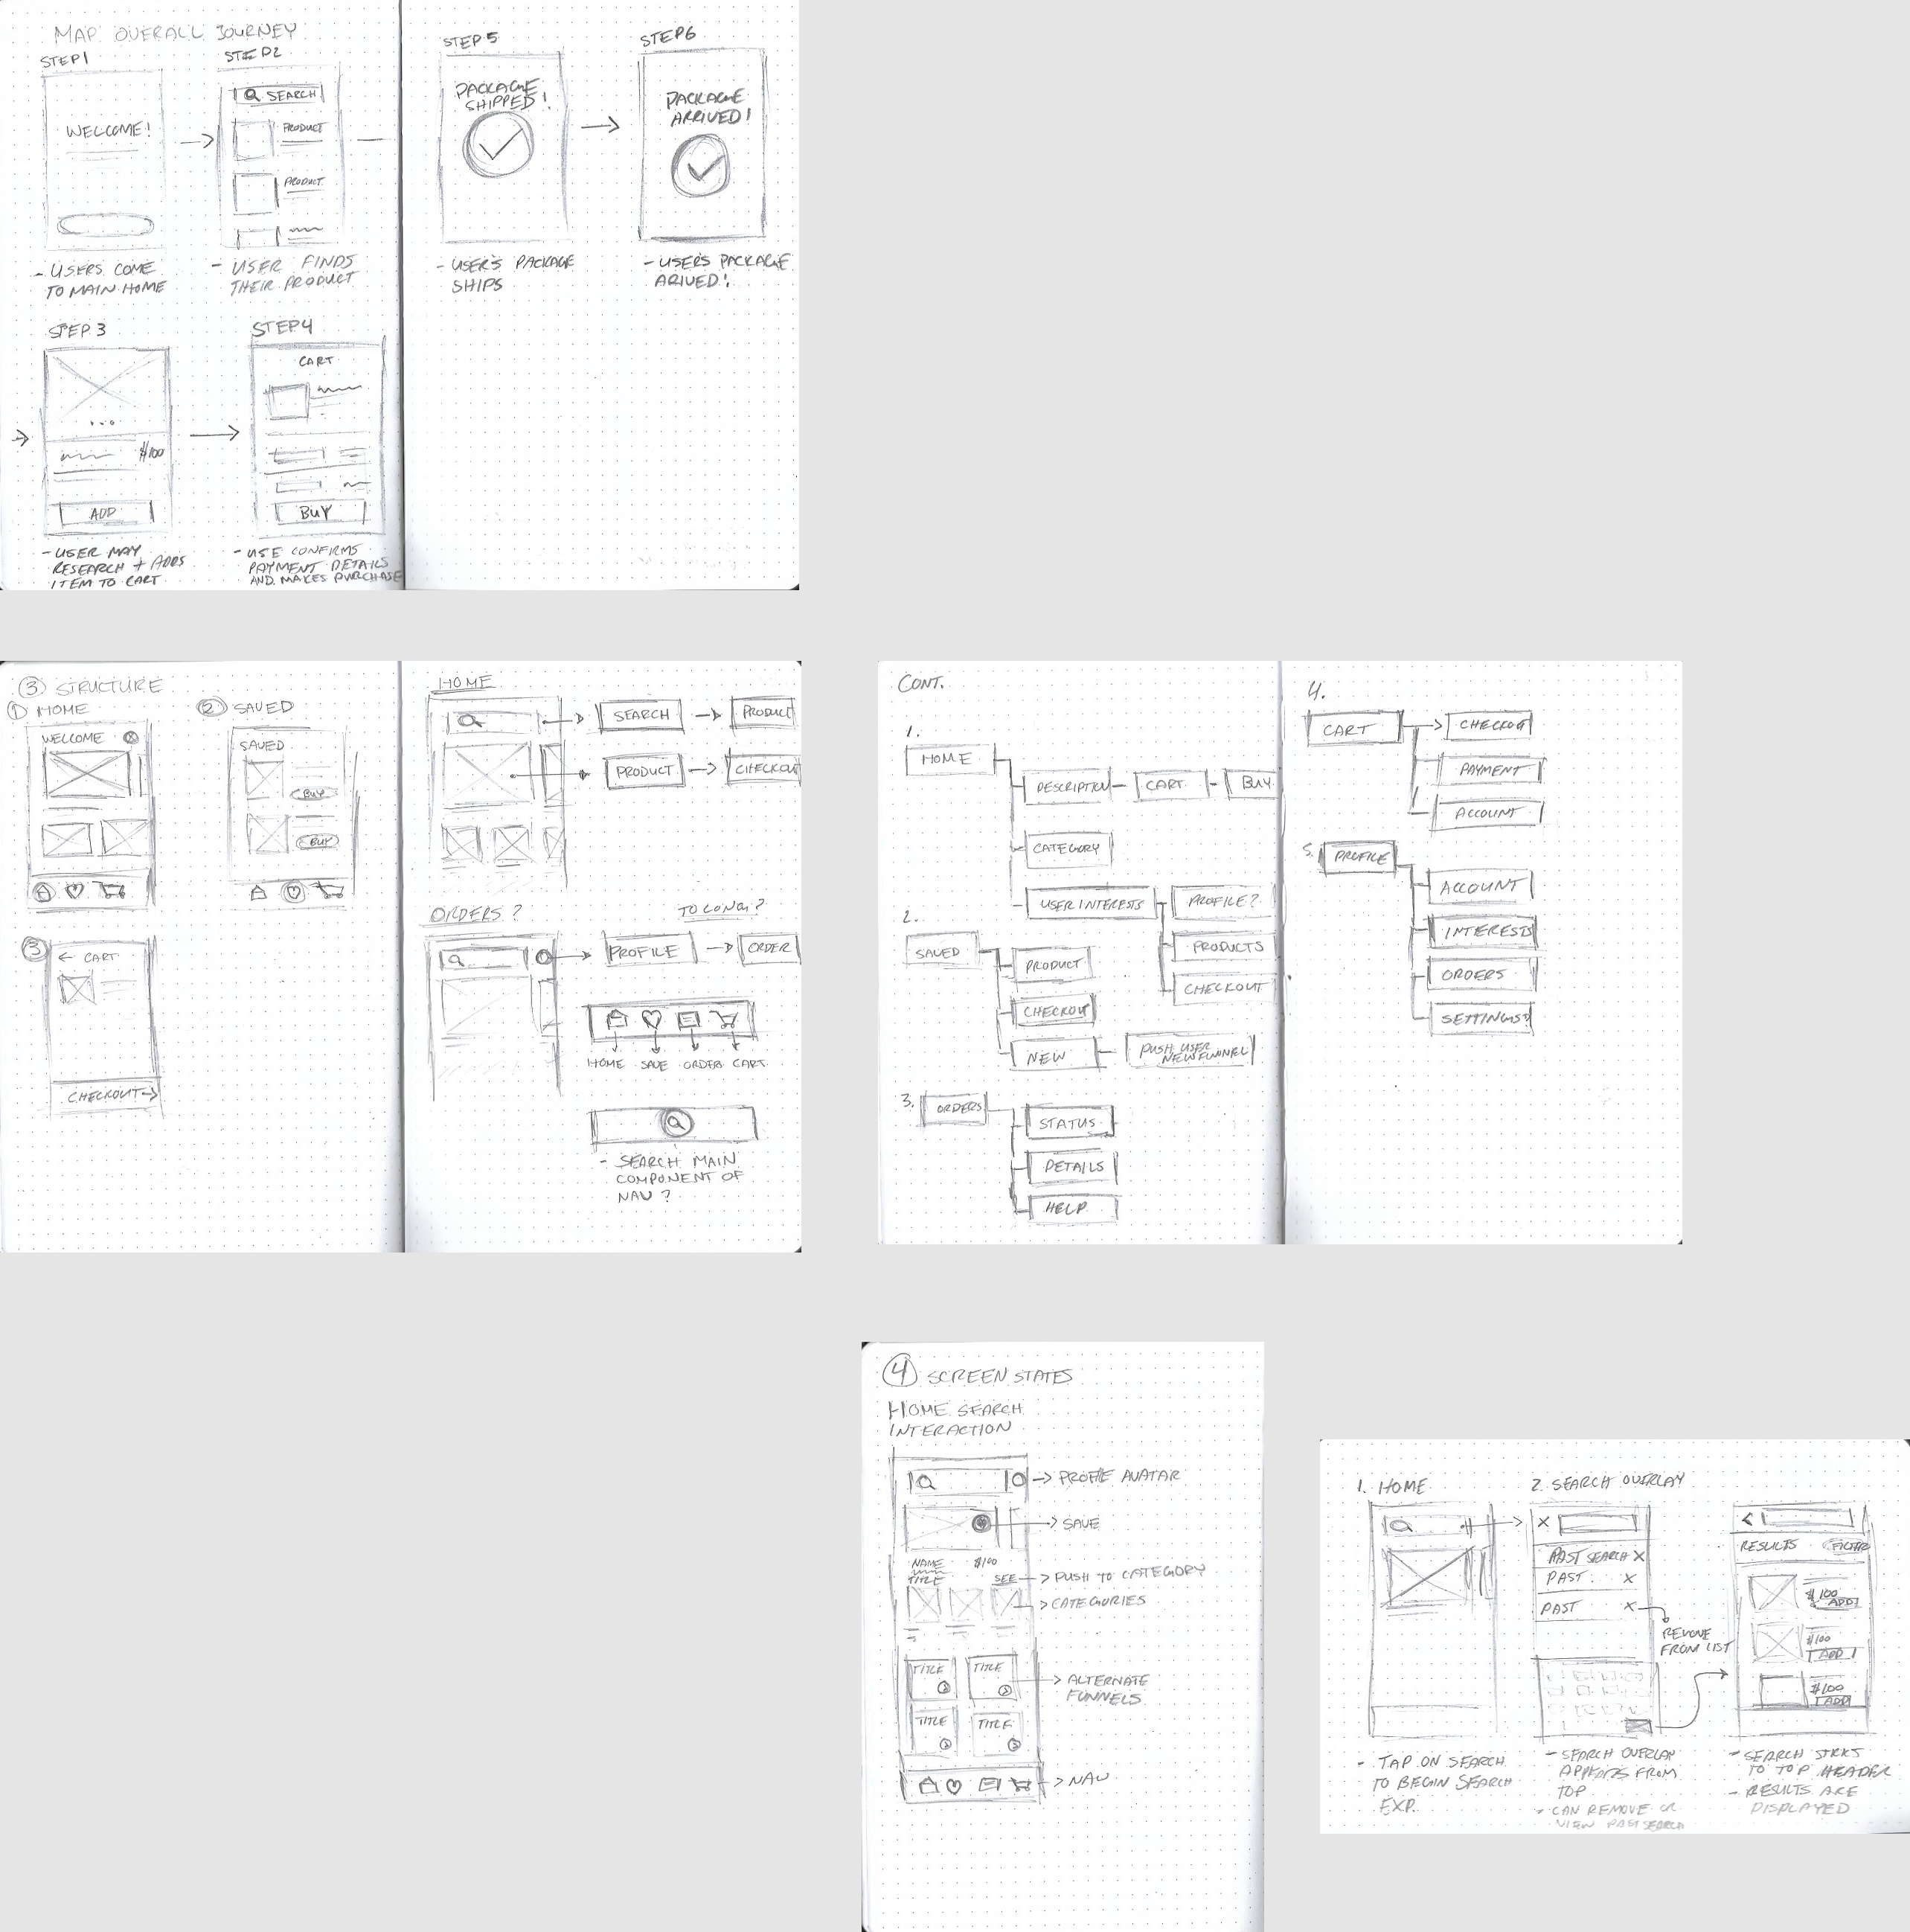 MAP OVERALL JOURNEY
STEP 1
WELCOME!
- USERS COME
TO MAIN HOME
STEP 2
SEARCH
PRODUCT
PRODUCT
- USER FINDS
THEIR PRODUCT
STEP 3
$100
ADD
- USER MAY
RESEARCH + ADDS
ITEM TO CART
STEP 4
CART
BUY
- USE CONFIRMS
PAYMENT DETAILS
AND MAKES PURCHASE
STEP 5
PACKAGE
SHIPPED!
- USER'S PACKAGE
SHIPS
STEP 6
PACKAGE
ARRIVED!
- USER'S PACKAGE
ARIVED!
3 STRUCTURE
1 HOME
WELCOME
2 SAVED
SAVED
BUY
BUY
3
← CART
CHECKOUT →
HOME
SEARCH → PRODUCT
PRODUCT → CHECKOUT
ORDERS?
TO LONG?
PROFILE → ORDER
HOME SAVE ORDER CART
- SEARCH MAIN
COMPONENT OF
NAV?
CONT.
1.
HOME
DESCRIPTION - CART - BUY
CATEGORY
USER INTERESTS
PROFILE?
PRODUCTS
CHECKOUT
2.
SAVED
PRODUCT
CHECKOUT
NEW
PUSH USER
NEW FUNNEL
3.
ORDERS
STATUS
DETAILS
HELP
4.
CART
CHECKOUT
PAYMENT
ACCOUNT
5.
PROFILE
ACCOUNT
INTERESTS
ORDERS
SETTINGS?
4 SCREEN STATES
HOME SEARCH
INTERACTION
→ PROFILE AVATAR
→ SAVE
NAME $100
TITLE SEE → PUSH TO CATEGORY
→ CATEGORIES
TITLE TITLE
→ ALTERNATE
FUNNELS
TITLE TITLE
→ NAV
1. HOME
- TAP ON SEARCH
TO BEGIN SEARCH
EXP.
2. SEARCH OVERLAY
X
PAST SEARCH X
PAST X
PAST X
REMOVE
FROM LIST
- SEARCH OVERLAY
APPEARS FROM
TOP
- CAN REMOVE OR
VIEW PAST SEARCH
<
RESULTS FILTER
$100
ADD
$100
ADD
$100
ADD
- SEARCH STICKS
TO TOP HEADER
- RESULTS ARE
DISPLAYED